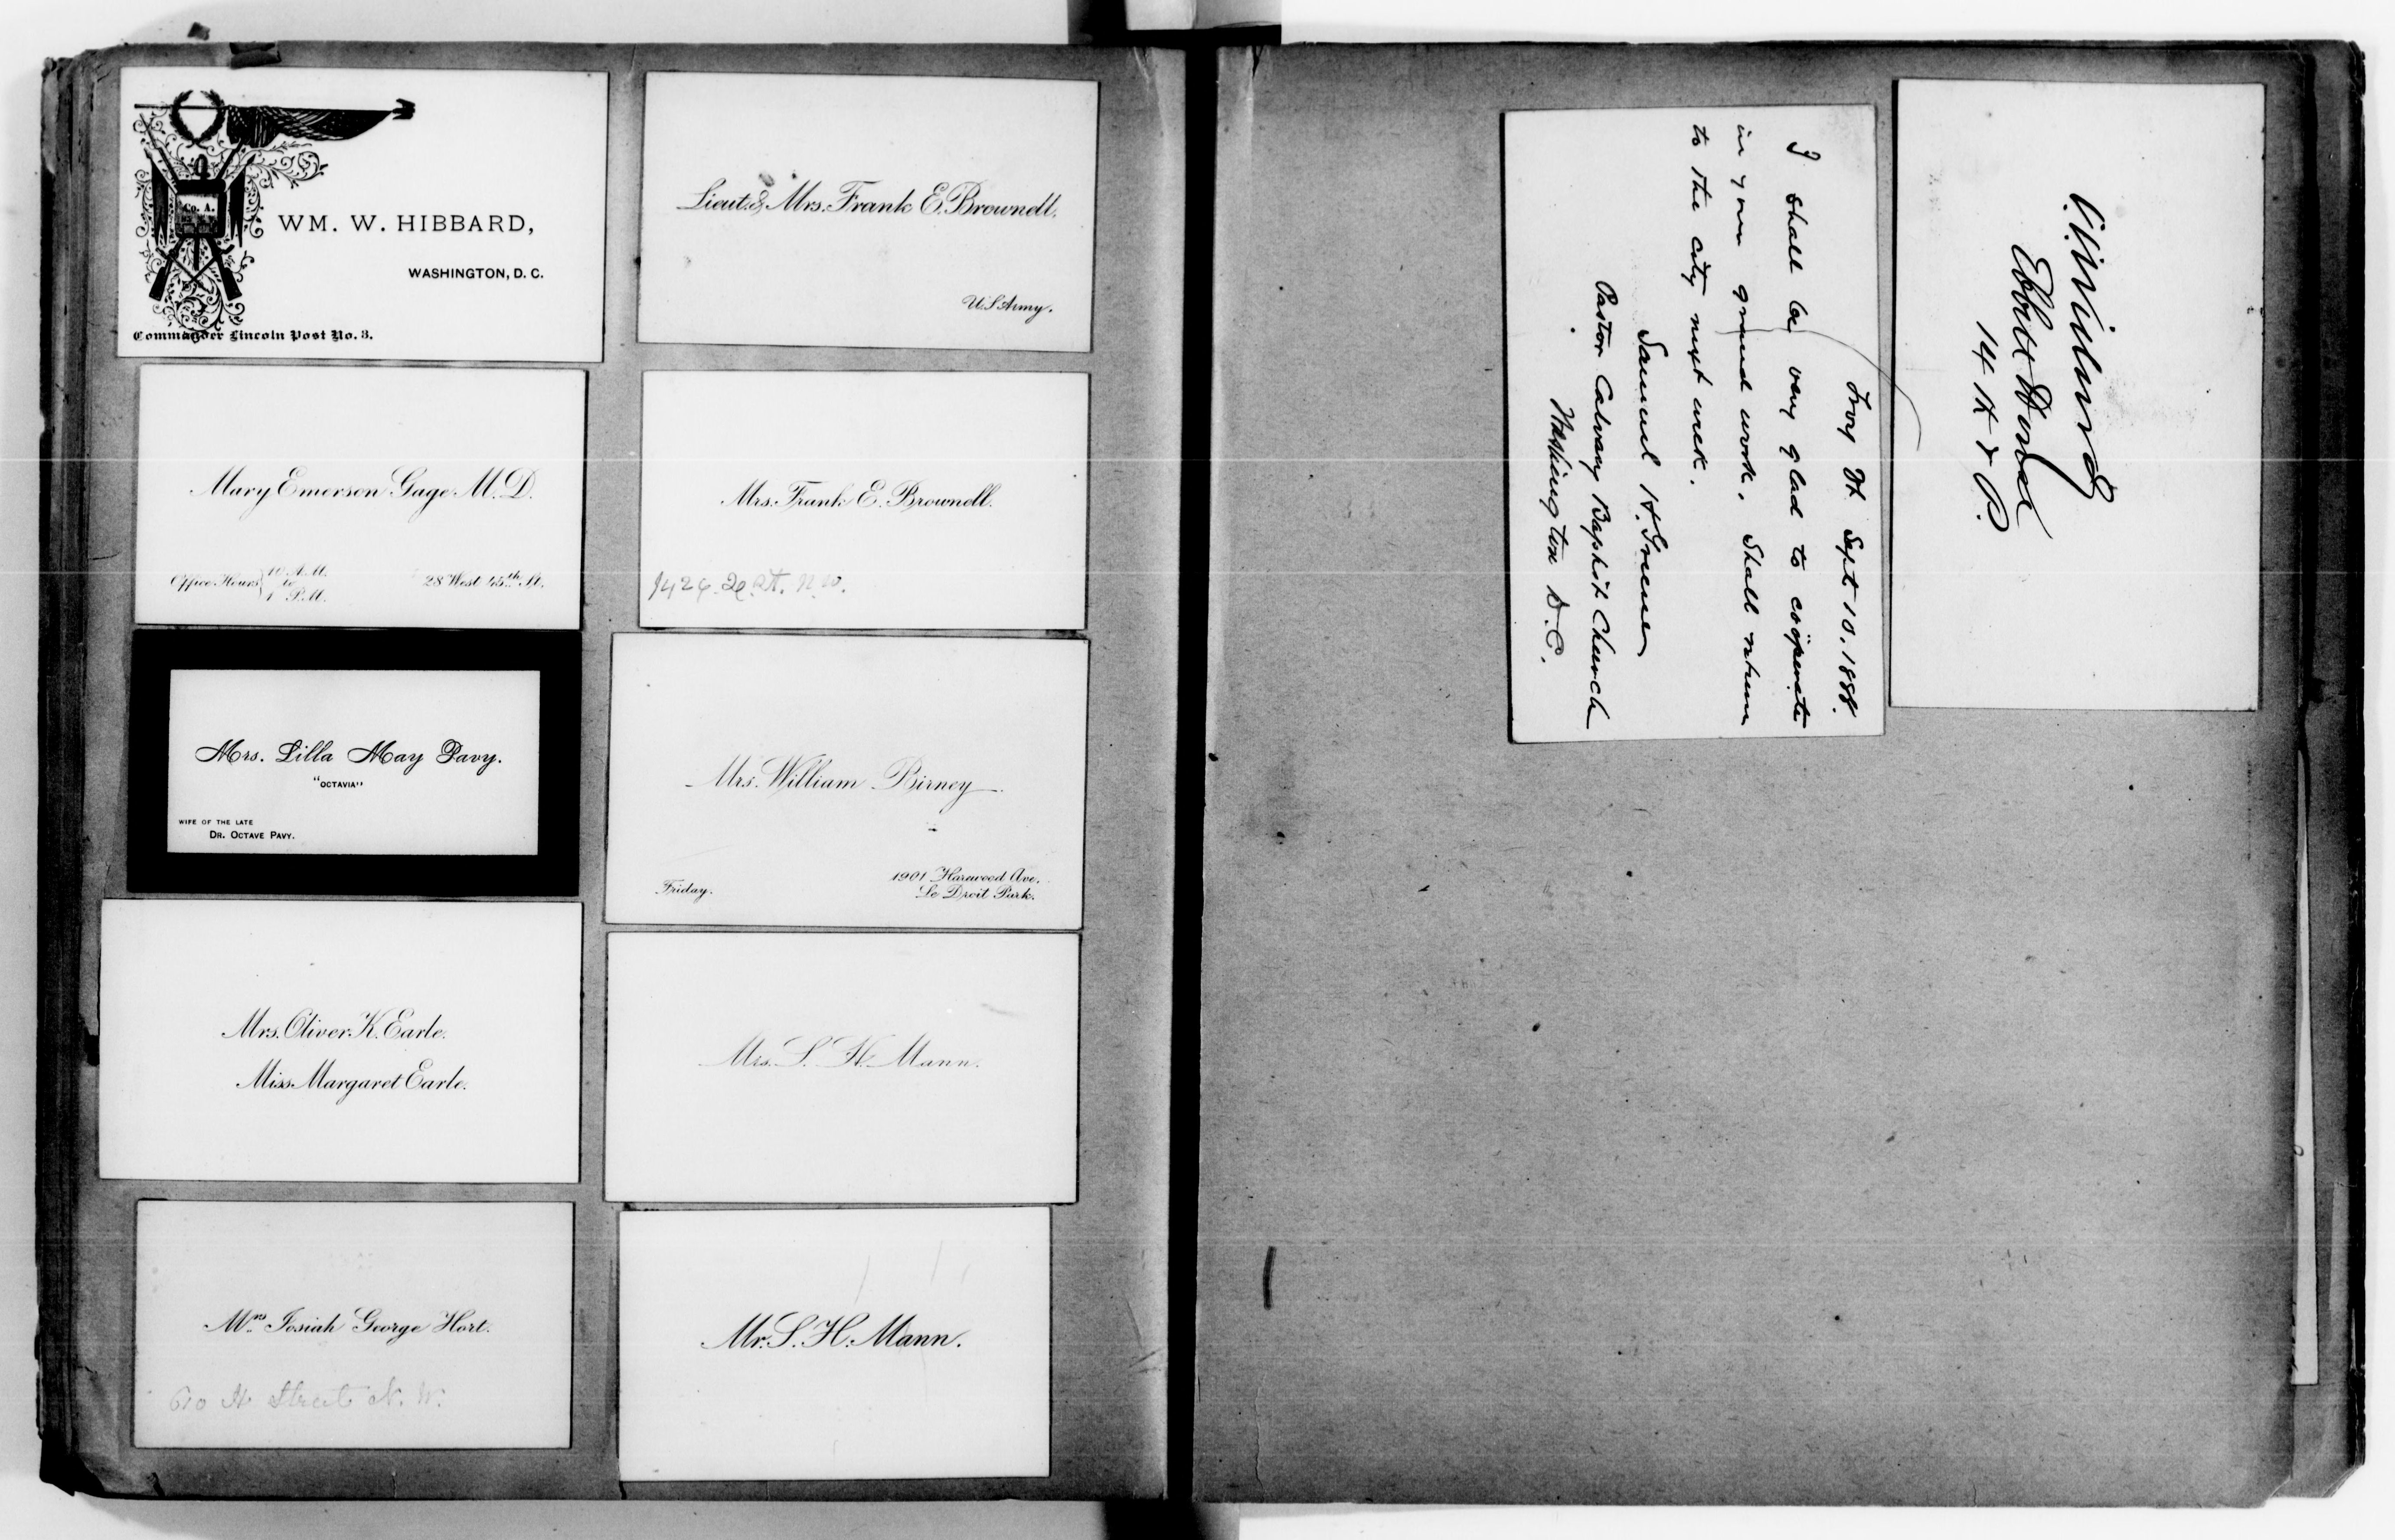 Co. A.
WM. W. HIBBARD,
WASHINGTON, D. C.
Commander Lincoln Post No. 3.
Mary Emerson Gage M.D.
Office Hours 10 A.M. to 1 P.M.
28 West 45th St.
Mrs. Lilla May Pavy.
"OCTAVIA"
WIFE OF THE LATE
DR. OCTAVE PAVY.
Mrs. Oliver K. Earle.
Miss Margaret Earle.
Mrs Josiah George Hort.
610 H Street N. W.
Lieut. & Mrs. Frank E. Brownell.
U.S. Army.
Mrs. Frank E. Brownell.
1426 Q St. N.W.
Mrs. William Birney
Friday.
1901 Harewood Ave.
Le Droit Park.
Mrs. S. H. Mann.
Mr. S. H. Mann.
Troy Sept 10. 1888.
I shall be very glad to coöperate
in your grand work. Shall return
to the city next week.
Samuel H. Greene
Pastor Calvary Baptist Church
Washington D.C.
Ebbitt House
14 &